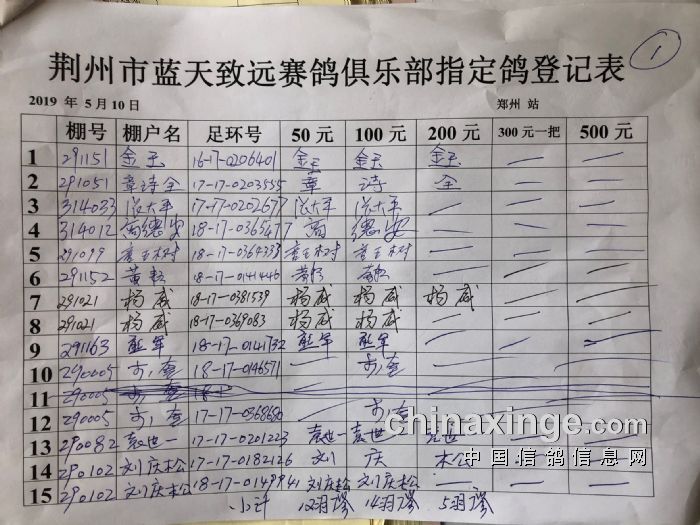 1
荆州市蓝天致远赛鸽俱乐部指定鸽登记表
2019 年 5 月 10 日 郑州 站
棚号 棚户名 足环号 50 元 100 元 200 元 300 元一把 500 元
1 291151 金玉 16-17-0206401 金玉 金玉 金玉 — —
2 291051 章诗全 17-17-0203555 章 诗 全 — —
3 314033 大平 17-17-0202677 大平 大平 — — —
4 314012 高德安 18-17-0365477 高 德安 — — —
5 291099 18-17-0364333 — — —
6 291152 黄 18-17-0141446 黄 — — —
7 291021 杨威 18-17-0381539 杨威 杨威 杨威 — —
8 291021 杨威 18-17-0369083 杨威 杨威 — — —
9 291163 军 18-17-0141732 军 军 — — —
10 290005 18-17-0146571 — — — —
11 290005 18-1
12 290005 17-17-0368686 — — — —
13 290082 袁世一 17-17-0201223 袁世一 袁世一 — —
14 290102 刘庆松 17-17-0182126 刘 庆 松 — —
15 290102 刘庆松 18-17-0149941 刘庆松 刘庆松 — — —
小计 12羽 14羽 5羽
chinaxinge.com
中国信鸽信息网